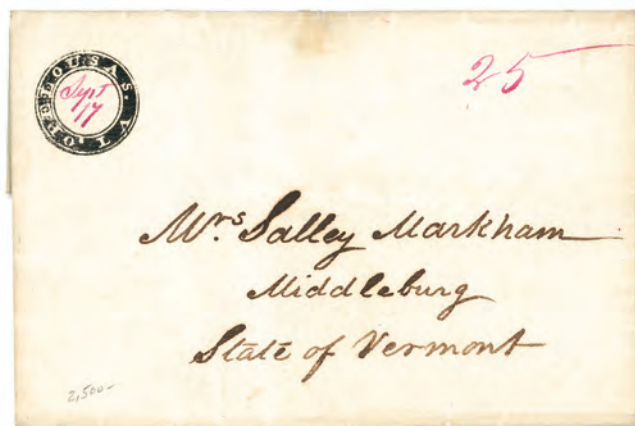 OPELOUSAS.
Sept
17
25
Mrs. Salley Markham
Middleburg
State of Vermont
2,500-